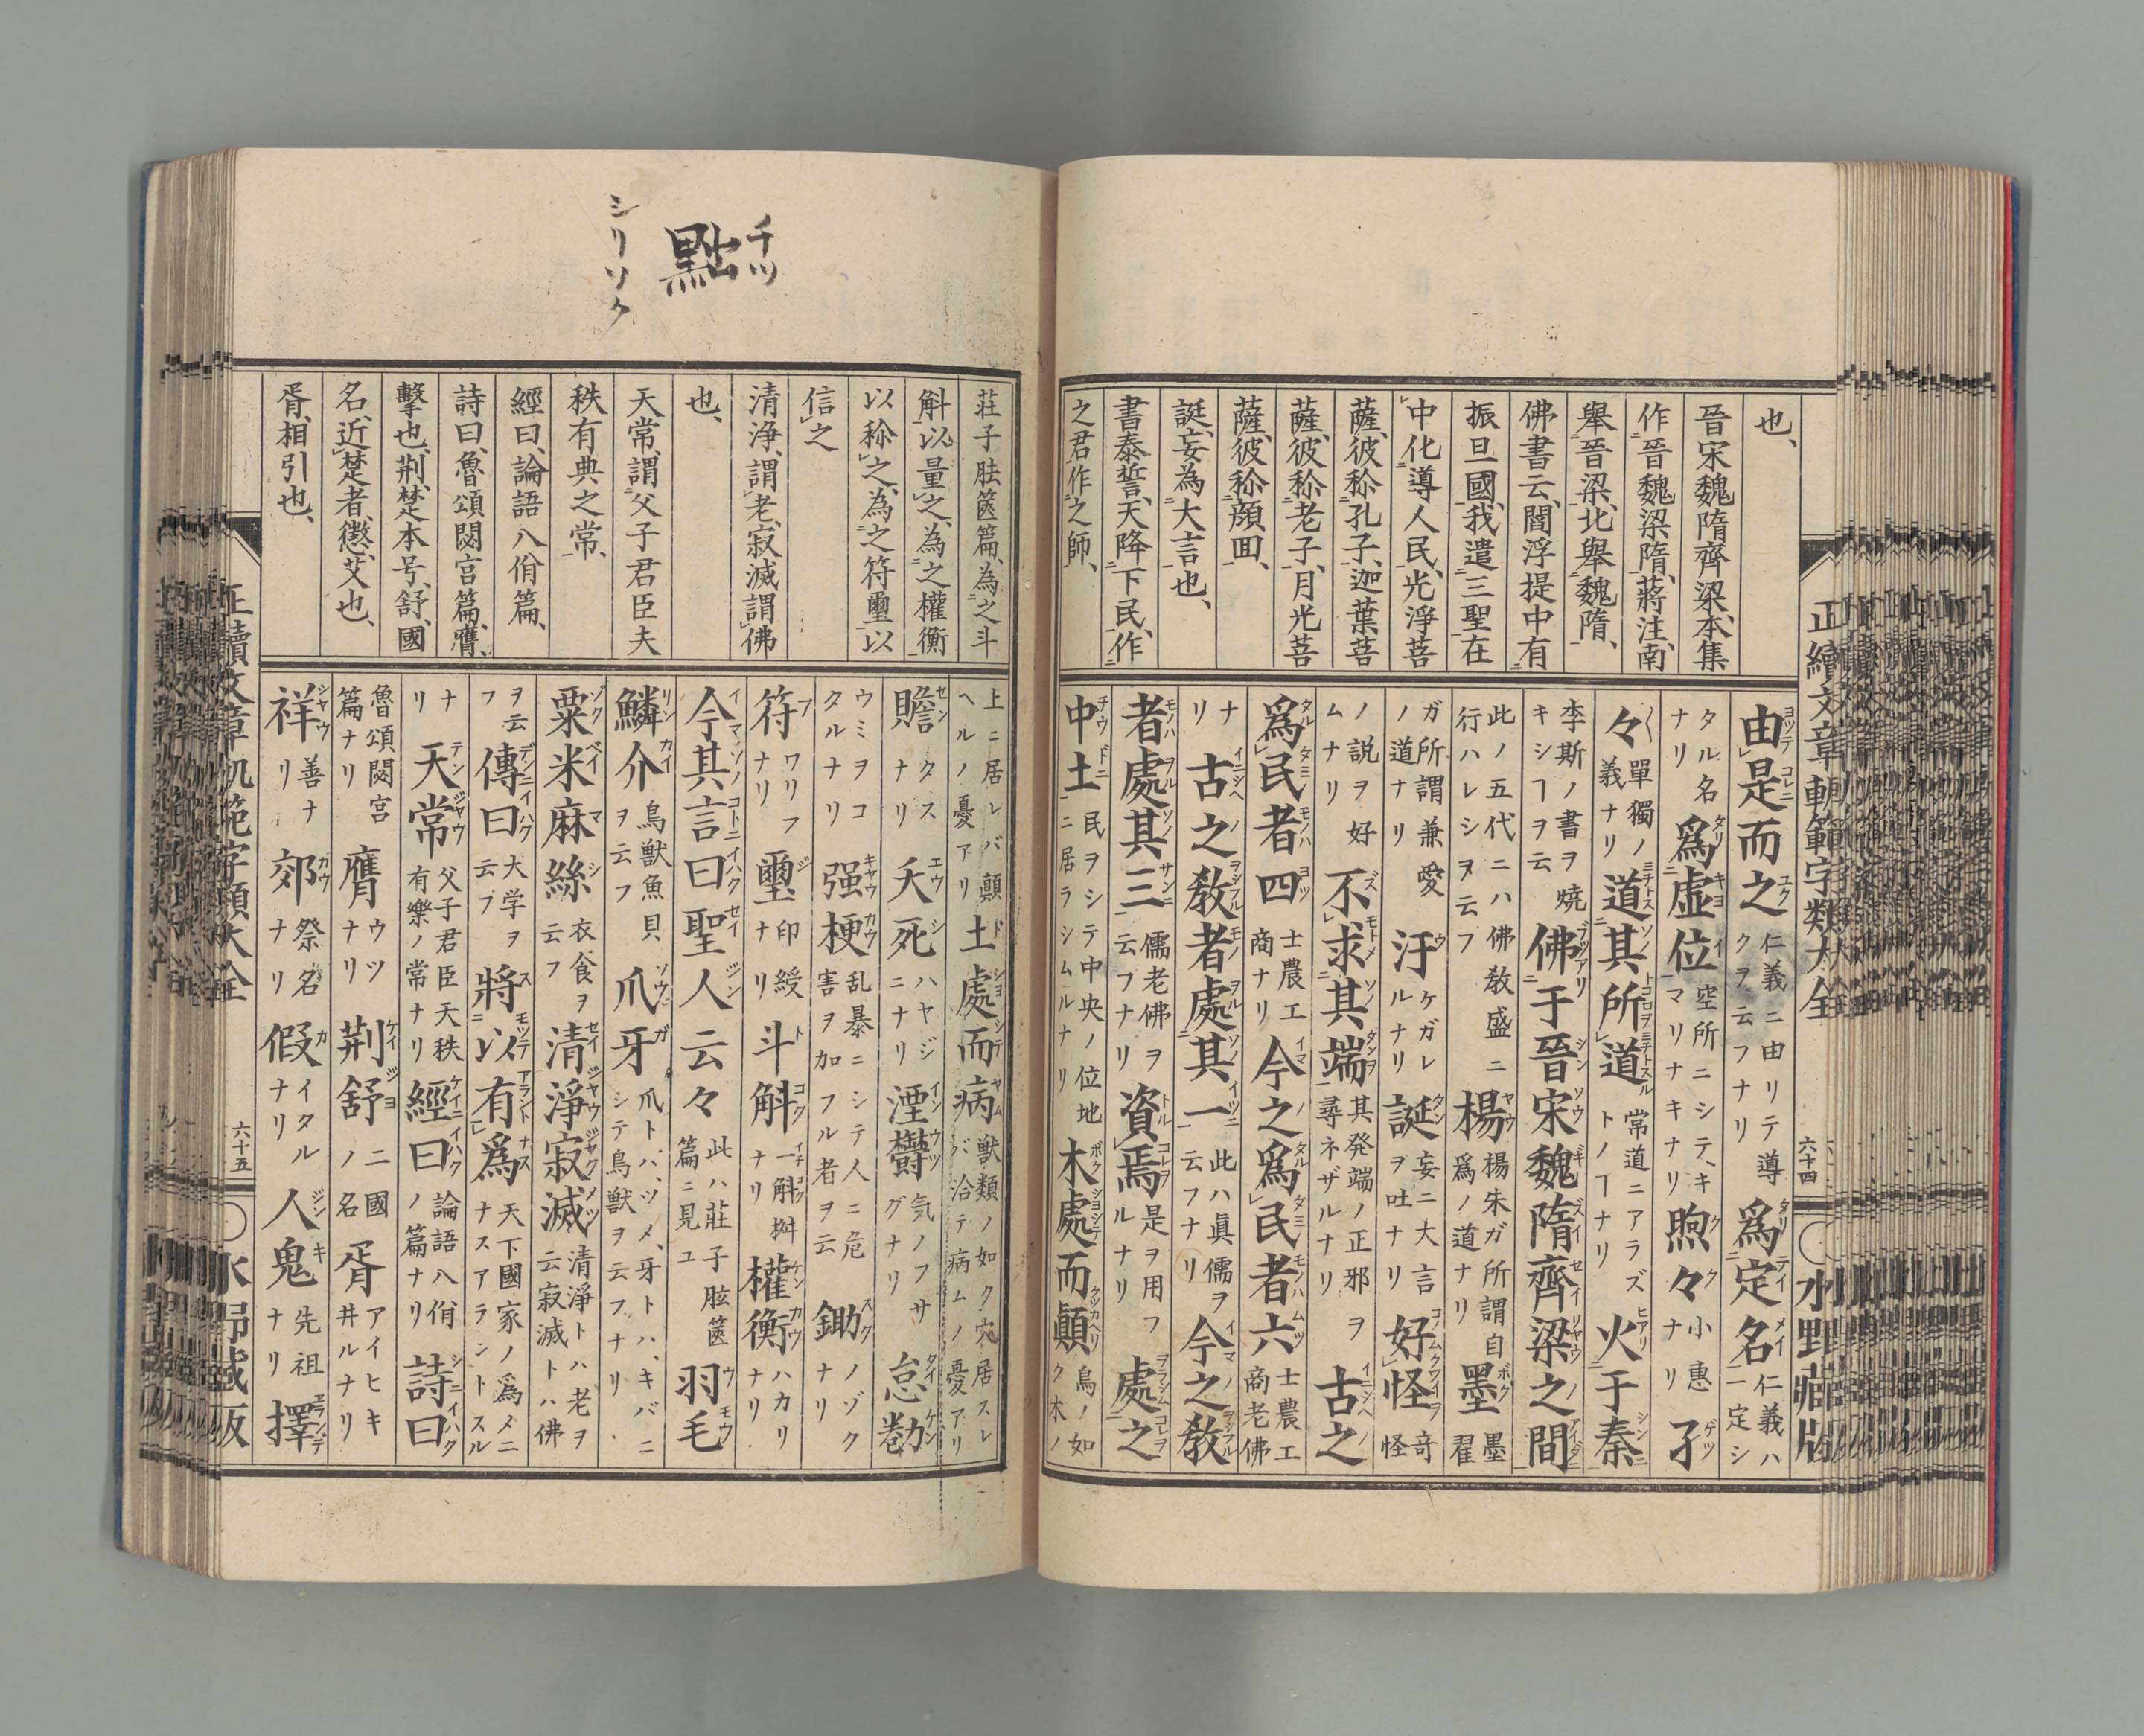 正續文章軌範字類大全 六十四 〇水野藏版
也、
晉宋魏隋齊梁、本集
作晉魏梁隋、蔣注、南
舉晉梁、北舉魏隋、
佛書云、閻浮提中有
振旦國、我遣三聖在
中化導人民、光淨菩
薩、彼称孔子、迦葉菩
薩、彼称老子、月光菩
薩、彼称顔回、
誕、妄為大言也、
書泰誓、天降下民、作
之君作之師、
由是而之 仁義ニ由リテ導クヲ云フナリ 爲定名 仁義ハ一定シ
タル名ナリ 爲虚位 空所ニシテ、キマリナキナリ 煦々 小惠ナリ 孑
々 單獨ノ義ナリ 道其所道 常道ニアラズトノヿナリ 火于秦
李斯ノ書ヲ焼キシヿヲ云 佛于晉宋魏隋齊梁之間
此ノ五代ニハ佛教盛ニ行ハレシヲ云フ 楊 楊朱ガ所謂自爲ノ道ナリ 墨 墨翟
ガ所謂兼愛ノ道ナリ 汙 ケガレルナリ 誕 妄ニ大言ヲ吐ナリ 好怪 奇怪
ノ説ヲ好ムナリ 不求其端 其発端ノ正邪ヲ尋ネザルナリ 古之
爲民者四 士農工商ナリ 今之爲民者六 士農工商老佛
ナリ 古之教者處其一 此ハ眞儒ヲ云フナリ 今之教
者處其三 儒老佛ヲ云フナリ 資焉 是ヲ用フルナリ 處之
中土 民ヲシテ中央ノ位地ニ居ラシムルナリ 木處而顚 鳥ノ如ク木ノ
チツ
黜
シリソク
莊子胠篋篇、為之斗
斛以量之、為之權衡
以称之、為之符璽以
信之
清浄、謂老、寂滅謂佛
也、
天常、謂父子君臣夫
秩有典之常、
經曰、論語八佾篇、
詩曰、魯頌閟宮篇、膺、
擊也、荊、楚本号、舒、國
名、近楚者、懲、艾也、
胥、相引也、
上ニ居レバ顚ヘルノ憂アリ 土處而病 獸類ノ如ク穴居スレバ沾テ病ムノ憂アリ
贍 タスナリ 夭死 ハヤジニナリ 湮鬱 気ノフサグナリ 怠勌
ウミヲコタルナリ 强梗 乱暴ニシテ人ニ危害ヲ加フル者ヲ云 鋤 ノゾクナリ
符 ワリフナリ 璽 印綬ナリ 斗斛 一斛桝ナリ 權衡 ハカリナリ
今其言曰聖人云々 此ハ莊子胠篋篇ニ見ユ 羽毛
鱗介 鳥獸魚貝ヲ云フ 爪牙 爪トハ、ツメ、牙トハ、キバニシテ鳥獸ヲ云フナリ
粟米麻絲 衣食ヲ云フ 清淨寂滅 清淨トハ老ヲ云寂滅トハ佛
ヲ云フ 傳曰 大学ヲ云フ 將以有爲 天下國家ノ爲メニナスアラントスル
ナリ 天常 父子君臣天秩有樂ノ常ナリ 經曰 論語八佾ノ篇ナリ 詩曰
魯頌閟宮篇ナリ 膺 ウツナリ 荆舒 二國ノ名 胥 アイヒキ井ルナリ
祥 善ナリ 郊 祭名ナリ 假 イタルナリ 人鬼 先祖ナリ 擇
正續文章軌範字類大全 六十五 〇水野藏版